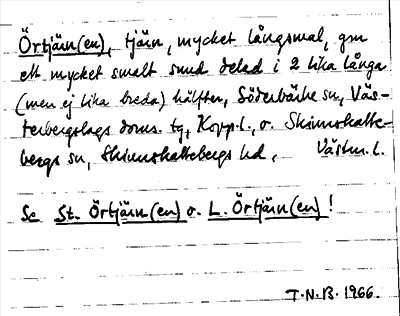 Örtjärn(en), tjärn, mycket långsmal, gm
ett mycket smalt sund delad i 2 lika långa
(men ej lika breda) hälfter, Söderbärke sn, Väs-
terbergslags doms. tg, Kopp.l., o. Skinnskatte-
bergs sn, Skinnskattebergs hd, Västm. l.
Se St. Örtjärn(en) o. L. Örtjärn(en)!
T.N.B. 1966.